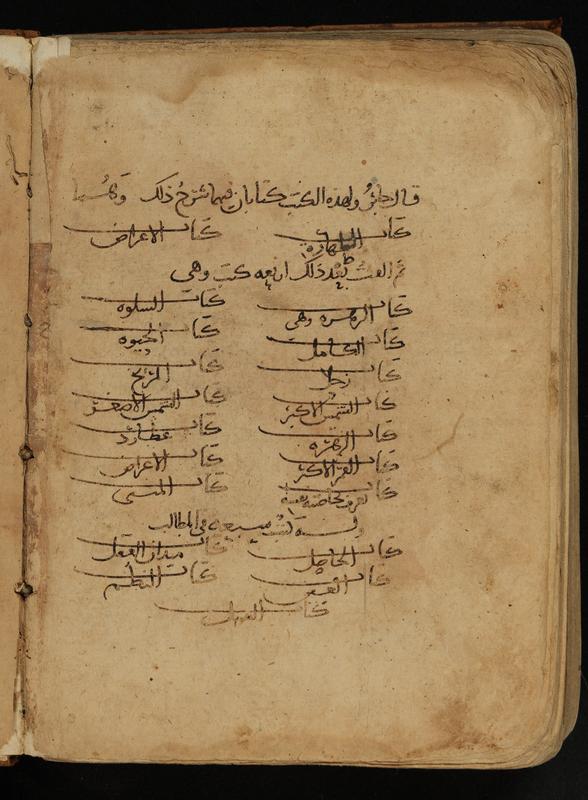 قال جابر ولهذه الكتب كتابان فيهما شرح ذلك وهما
كتاب الطهارة كتاب الاعراض
ثم الفت بعد ذلك اربعه كتب وهي
كتاب الزهره وهي كتاب السلوه
كتاب الكامل كتاب الحيوه
كتاب زحل كتاب المريخ
كتاب الشمس الاكبر كتاب الشمس الاصغر
كتاب الزهره كتاب عطارد
كتاب القمر الاكبر كتاب الاعراض
كتاب يعرف بخاصية نفسه كتاب المثنى
وله كتب سبعه في المطالب
كتاب الحاصل كتاب ميدان العقل
كتاب العين كتاب النظم
كتاب